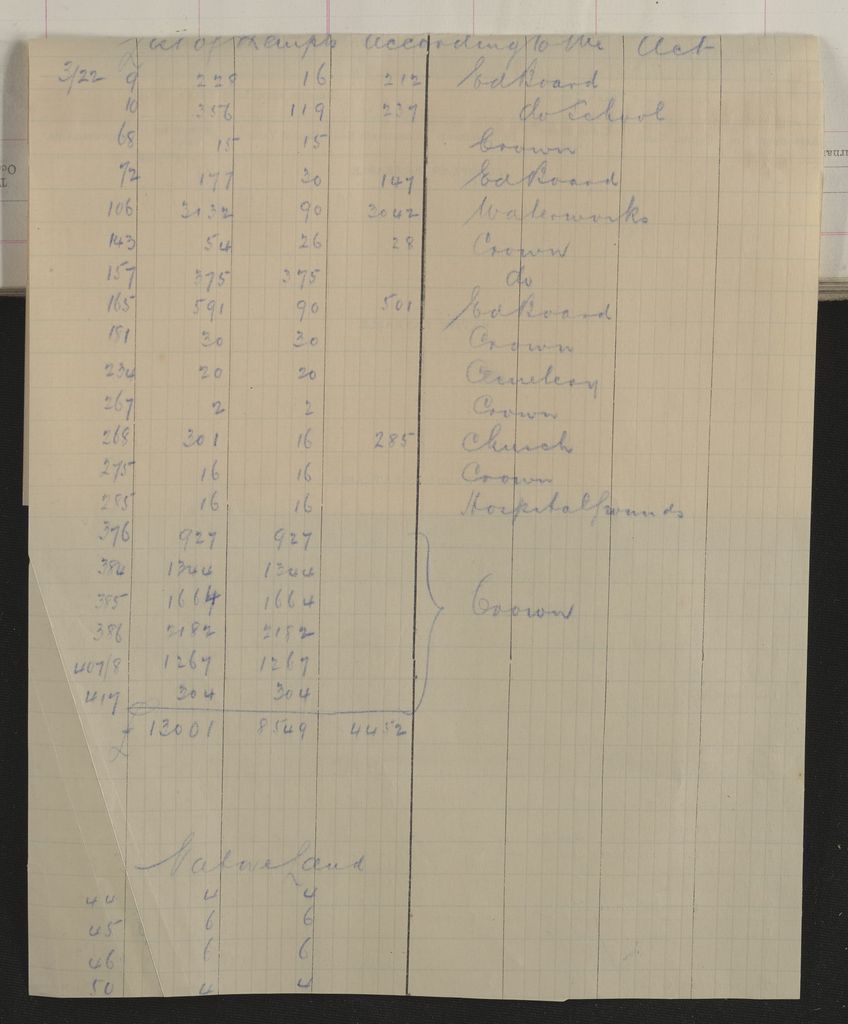 List of Exempts according to the Act
3/22 9 228 16 212 Ed Board
10 356 119 237 do School
68 15 15 Crown
72 177 30 147 Ed Board
106 3132 90 3042 Waterworks
143 54 26 28 Crown
157 375 375 do
165 591 90 501 Ed Board
181 30 30 Crown
234 20 20 Cemetery
267 2 2 Crown
268 301 16 285 Church
275 16 16 Crown
285 16 16 Hospital Grounds
376 927 927
384 1344 1344
385 1664 1664 Crown
386 2182 2182
407/8 1267 1267
417 304 304
£ 13001 8549 4452
Native Land
44 4 4
45 6 6
46 6 6
50 4 4